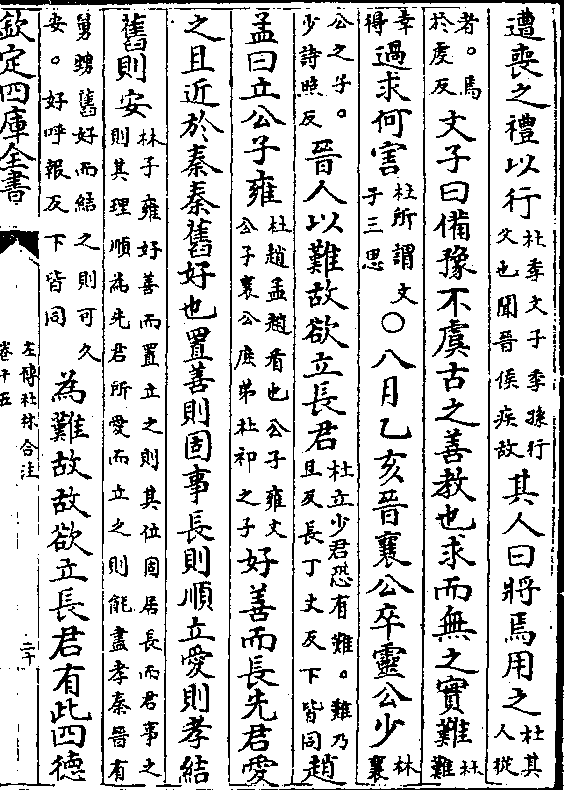 遭喪之禮以行杜季文子季孫行父也聞晉侯疾故其人曰將焉用之杜其人從
者。焉於虔反文子曰備豫不虞古之善教也求而無之實難林難
得幸過求何害杜所謂文子三思〇八月乙亥晉襄公卒靈公少林襄
公之子。少詩照反晉人以難故欲立長君杜立少君恐有難。難乃旦反長丁丈反下皆同趙
孟曰立公子雍杜趙孟趙盾也公子雍文公子襄公庶弟杜祁之子好善而長先君愛
之且近於秦秦舊好也置善則固事長則順立愛則孝結
舊則安林子雍好善而置立之則其位固居長而君事之則其理順為先君所愛而立之則能盡孝秦晉有
舅甥舊好而結之則可久安。好呼報反下皆同為難故故欲立長君有此四德
欽定四庫全書
左傳杜林合注
卷十五
二十